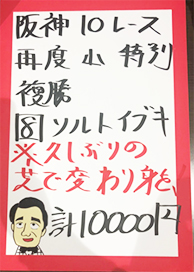 阪神10レース
再度山特別
複勝
⑧ソルトイブキ
※久しぶりの
芝で変わり身を、
計10000円